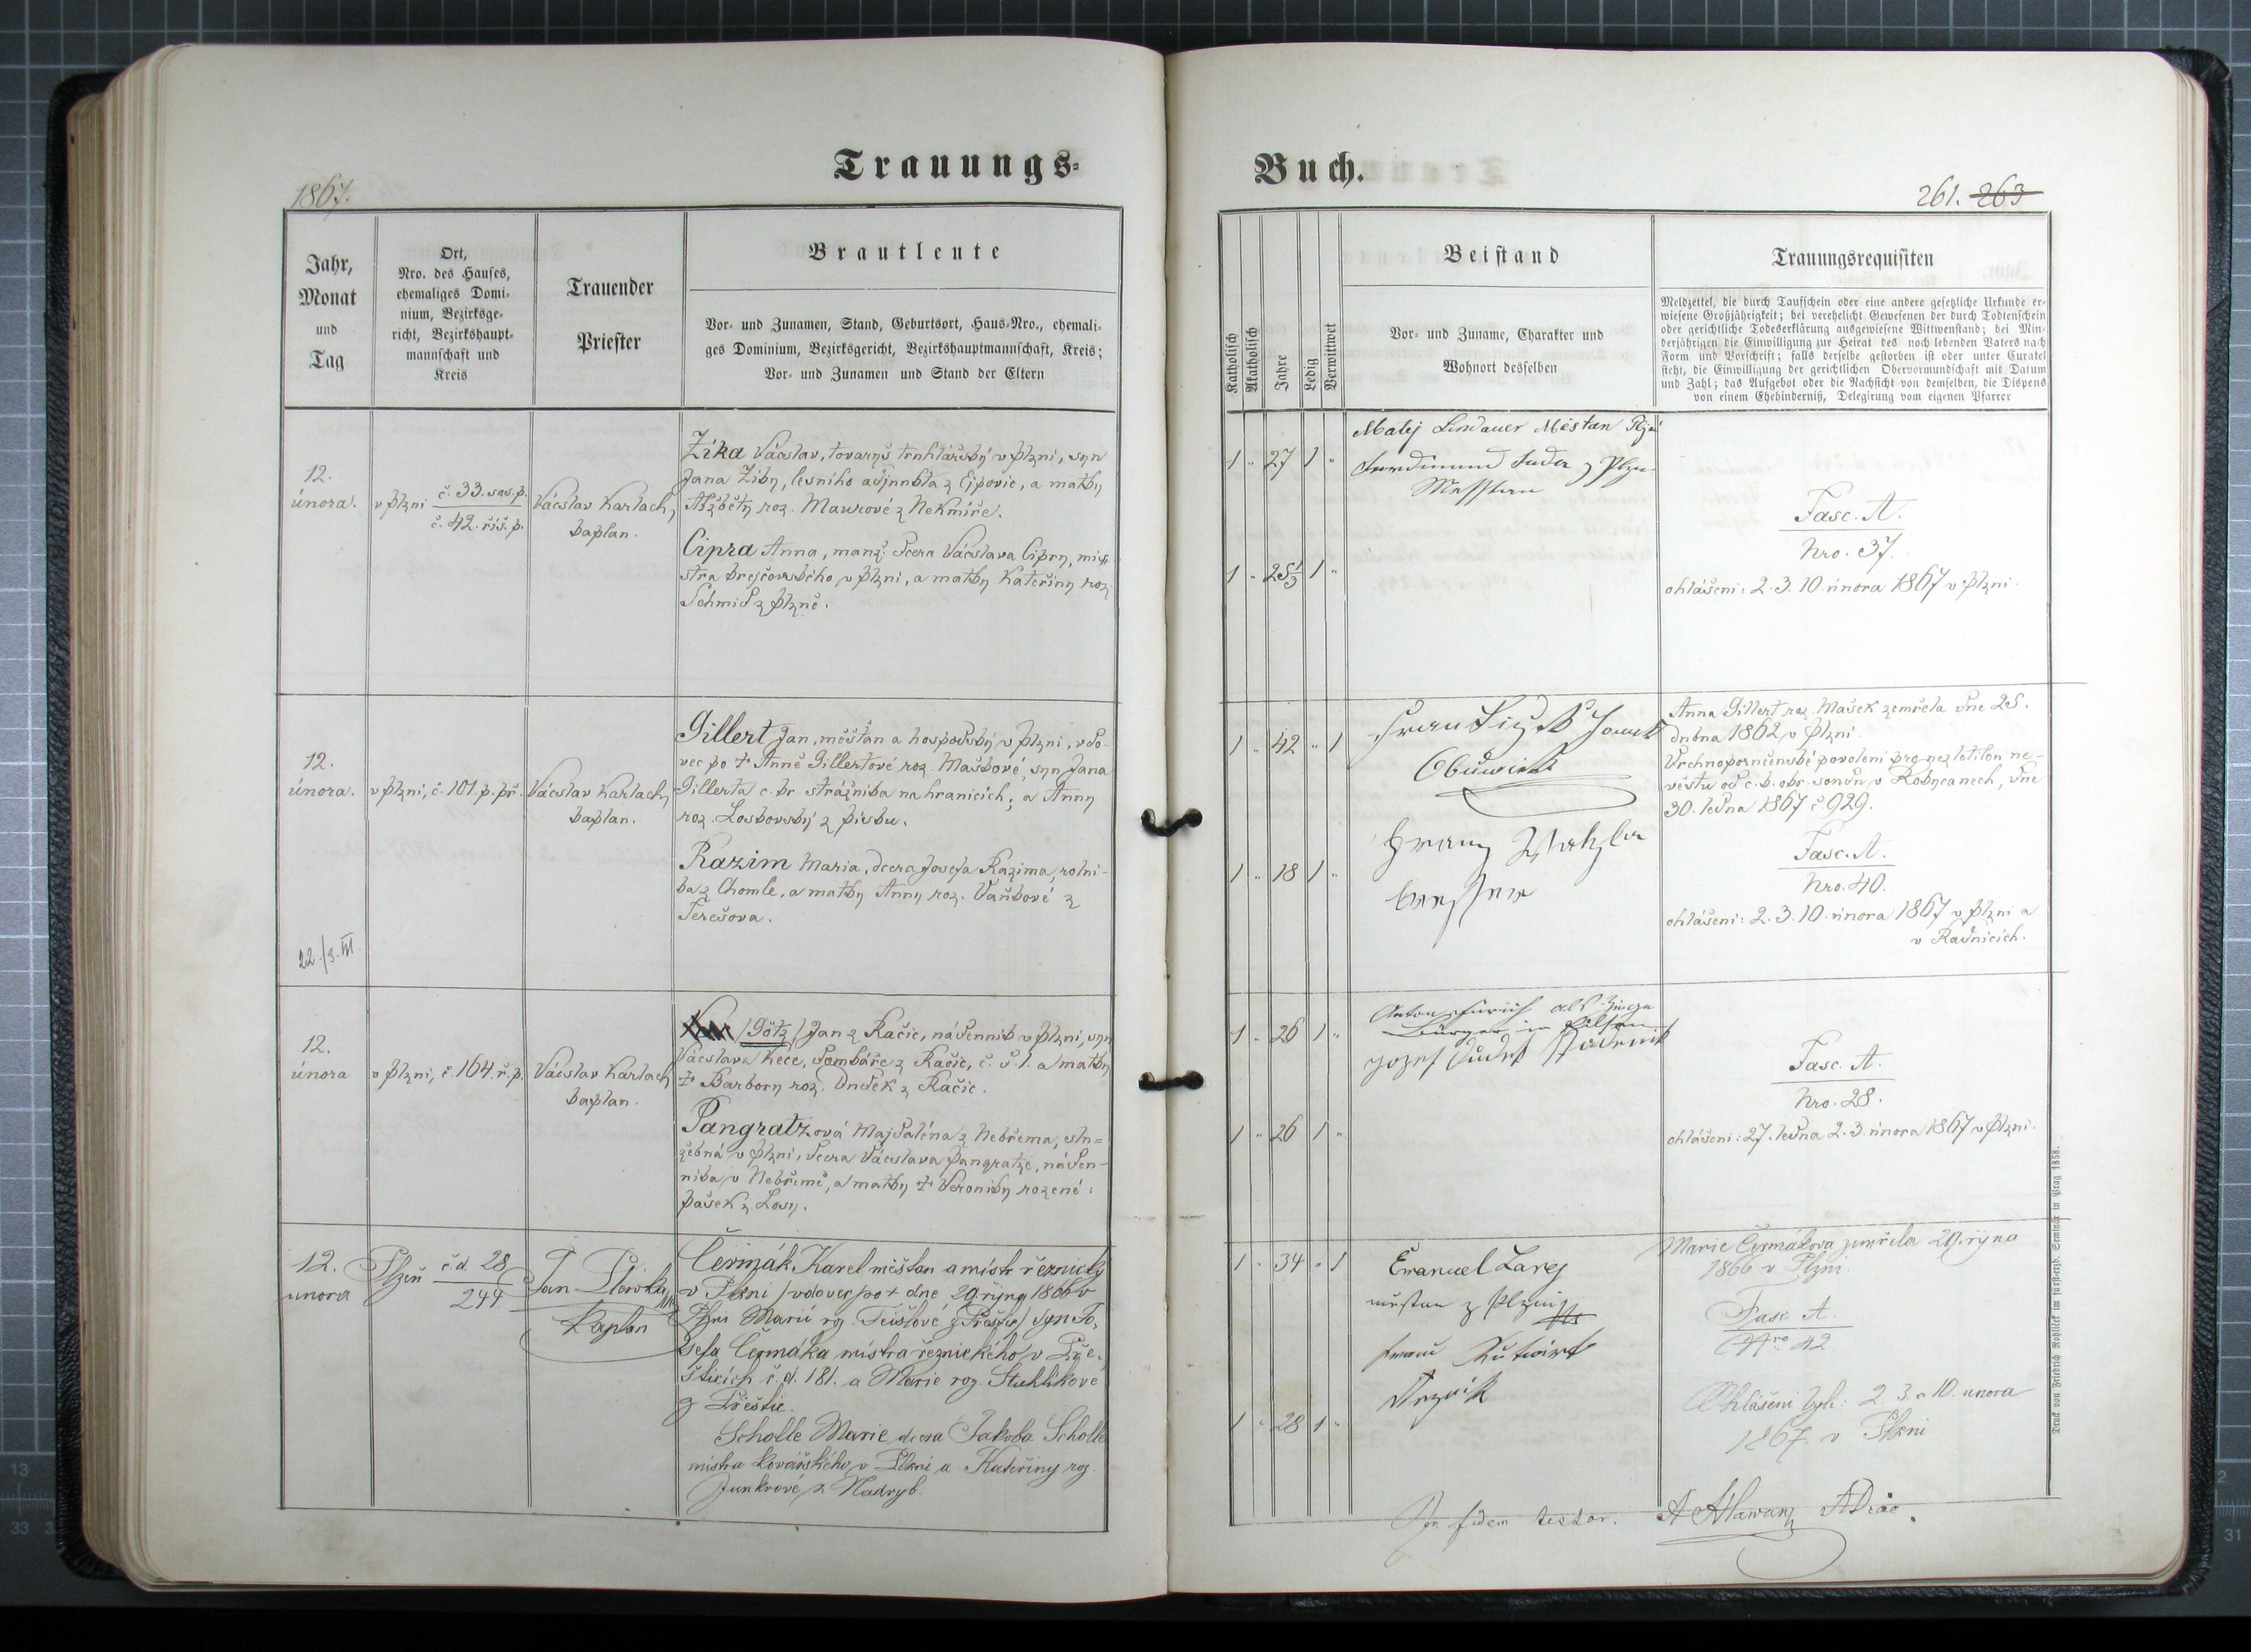 Trauungs=
Buch.
1867.
261. 263
Jahr,
Monat
und
Tag
Ort,
Nro. des Hauses,
ehemaliges Domi-
nium, Bezirksge-
richt, Bezirkshaupt-
mannschaft und
Kreis
Trauender
Priester
Brautleute
Vor- und Zunamen, Stand, Geburtsort, Haus-Nro., ehemali-
ges Dominium, Bezirksgericht, Bezirkshauptmannschaft, Kreis;
Vor- und Zunamen und Stand der Eltern
Katholisch
Akatholisch
Jahre
Ledig
Verwittwet
Beistand
Vor- und Zuname, Charakter und
Wohnort desselben
Trauungsrequisiten
Meldzettel, die durch Taufschein oder eine andere gesetzliche Urkunde er-
wiesene Großjährigkeit; bei verehelicht Gewesenen der durch Todtenschein
oder gerichtliche Todeserklärung ausgewiesene Wittwenstand; bei Min-
derjährigen die Einwilligung zur Heirat des noch lebenden Vaters nach
Form und Vorschrift; falls derselbe gestorben ist oder unter Curatel
steht, die Einwilligung der gerichtlichen Obervormundschaft mit Datum
und Zahl; das Aufgebot oder die Nachsicht von demselben, die Dispens
von einem Ehehinderniß, Delegirung vom eigenen Pfarrer
12.
února.
v Plzni č. 33. sas. p.
č. 42. říš. p.
Vácslav Karlach,
kaplan.
Žika Vácslav, tovaryš truhlářský v Plzni, syn
Jana Žiky, lesního adjunkta z Lipovic, a matky
Alžběty roz. Maurové z Nekmíře.
Cipra Anna, manž. dcera Vácslava Cipry, mis-
stra krejčovského v Plzni, a matky Kateřiny roz.
Schmid z Plzně.
1 " 27 1 "
1 " 25 1/3 1 "
Matěj Lindauer Měštan
Fasc. A.
Nro. 37.
ohlášeni: 2. 3. 10. února 1867 v Plzni.
12.
února.
v Plzni, č. 101. p. př.
Vácslav Karlach,
kaplan.
Gillert Jan, měšťan a hospodský v Plzni, vdo-
vec po + Anně Gillertové roz. Maškové, syn Jana
Gillerta c. kr. strážníka na hranicích, a Anny
roz. Loskovský z Písku.
Razim Maria, dcera Josefa Razima, rolní-
ka z Chomle, a matky Anny roz. Vaňkové z
Terešova.
22./3. III.
1 " 42 " 1
1 " 18 1 "
Franz
Anna Gillert roz. Mašek zemřela dne 25.
dubna 1862 v Plzni.
Vrchnoporučenské povolení pro nezletilou ne-
věstu od c. k. okr. soudu v Rokycanech, dne
30. ledna 1867 č 929.
Fasc. A.
Nro. 40.
ohlášeni: 2. 3. 10. února 1867 v Plzni a
v Radnicích.
12.
února
v Plzni, č. 164. ř. p.
Vácslav Karlach
kaplan.
/Götz/ Jan z Kačic, nádenník v Plzni, syn
Vácslava Kece, domkáře z Kačic, č. d. 1. a matky
+ Barbory roz. Dudek z Kačic.
Pangratzová Majdaléna z Nebřema, slu=
žebná v Plzni, dcera Vácslava Pangratze, náden-
níka v Nebřemě, a matky + Veroniky rozené
Pašek z Losy.
1 " 26 1 "
1 " 26 1 "
Bürger in Pilsen
Fasc. A.
Nro. 28.
ohlášeni: 27. ledna 2. 3. února 1867 v Plzni.
12.
unora
Plzeň č.d. 28
244
Jan
Kaplan
Čermák Karel měštan a mistr řeznický
v Plzni / vdovec po + dne 29. října 1866 v
Plzni Marii roz. z Přeštic / syn Jo-
sefa Čermáka mistra řeznického v Pře-
šticích č. d. 181. a Marie roz. Stuhlíkové
z Přeštic.
Scholle Marie dcera Jakoba Scholle
mistra kovářského v Plzni a Kateřiny roz.
Junkrové z Nadryb.
1 " 34 " 1
1 " 28 1 "
Emanuel
měštan z Plzni
Marie Čermákova zemřela 29. října
1866 v Plzni.
Fasc A.
Nro 42
Ohlášeni byli: 2. 3 a 10. unora
1867. v Plzni
In fidem testor.
Druck von Friedrich Rohliček im fürsterzb. Seminar in Prag 1858.